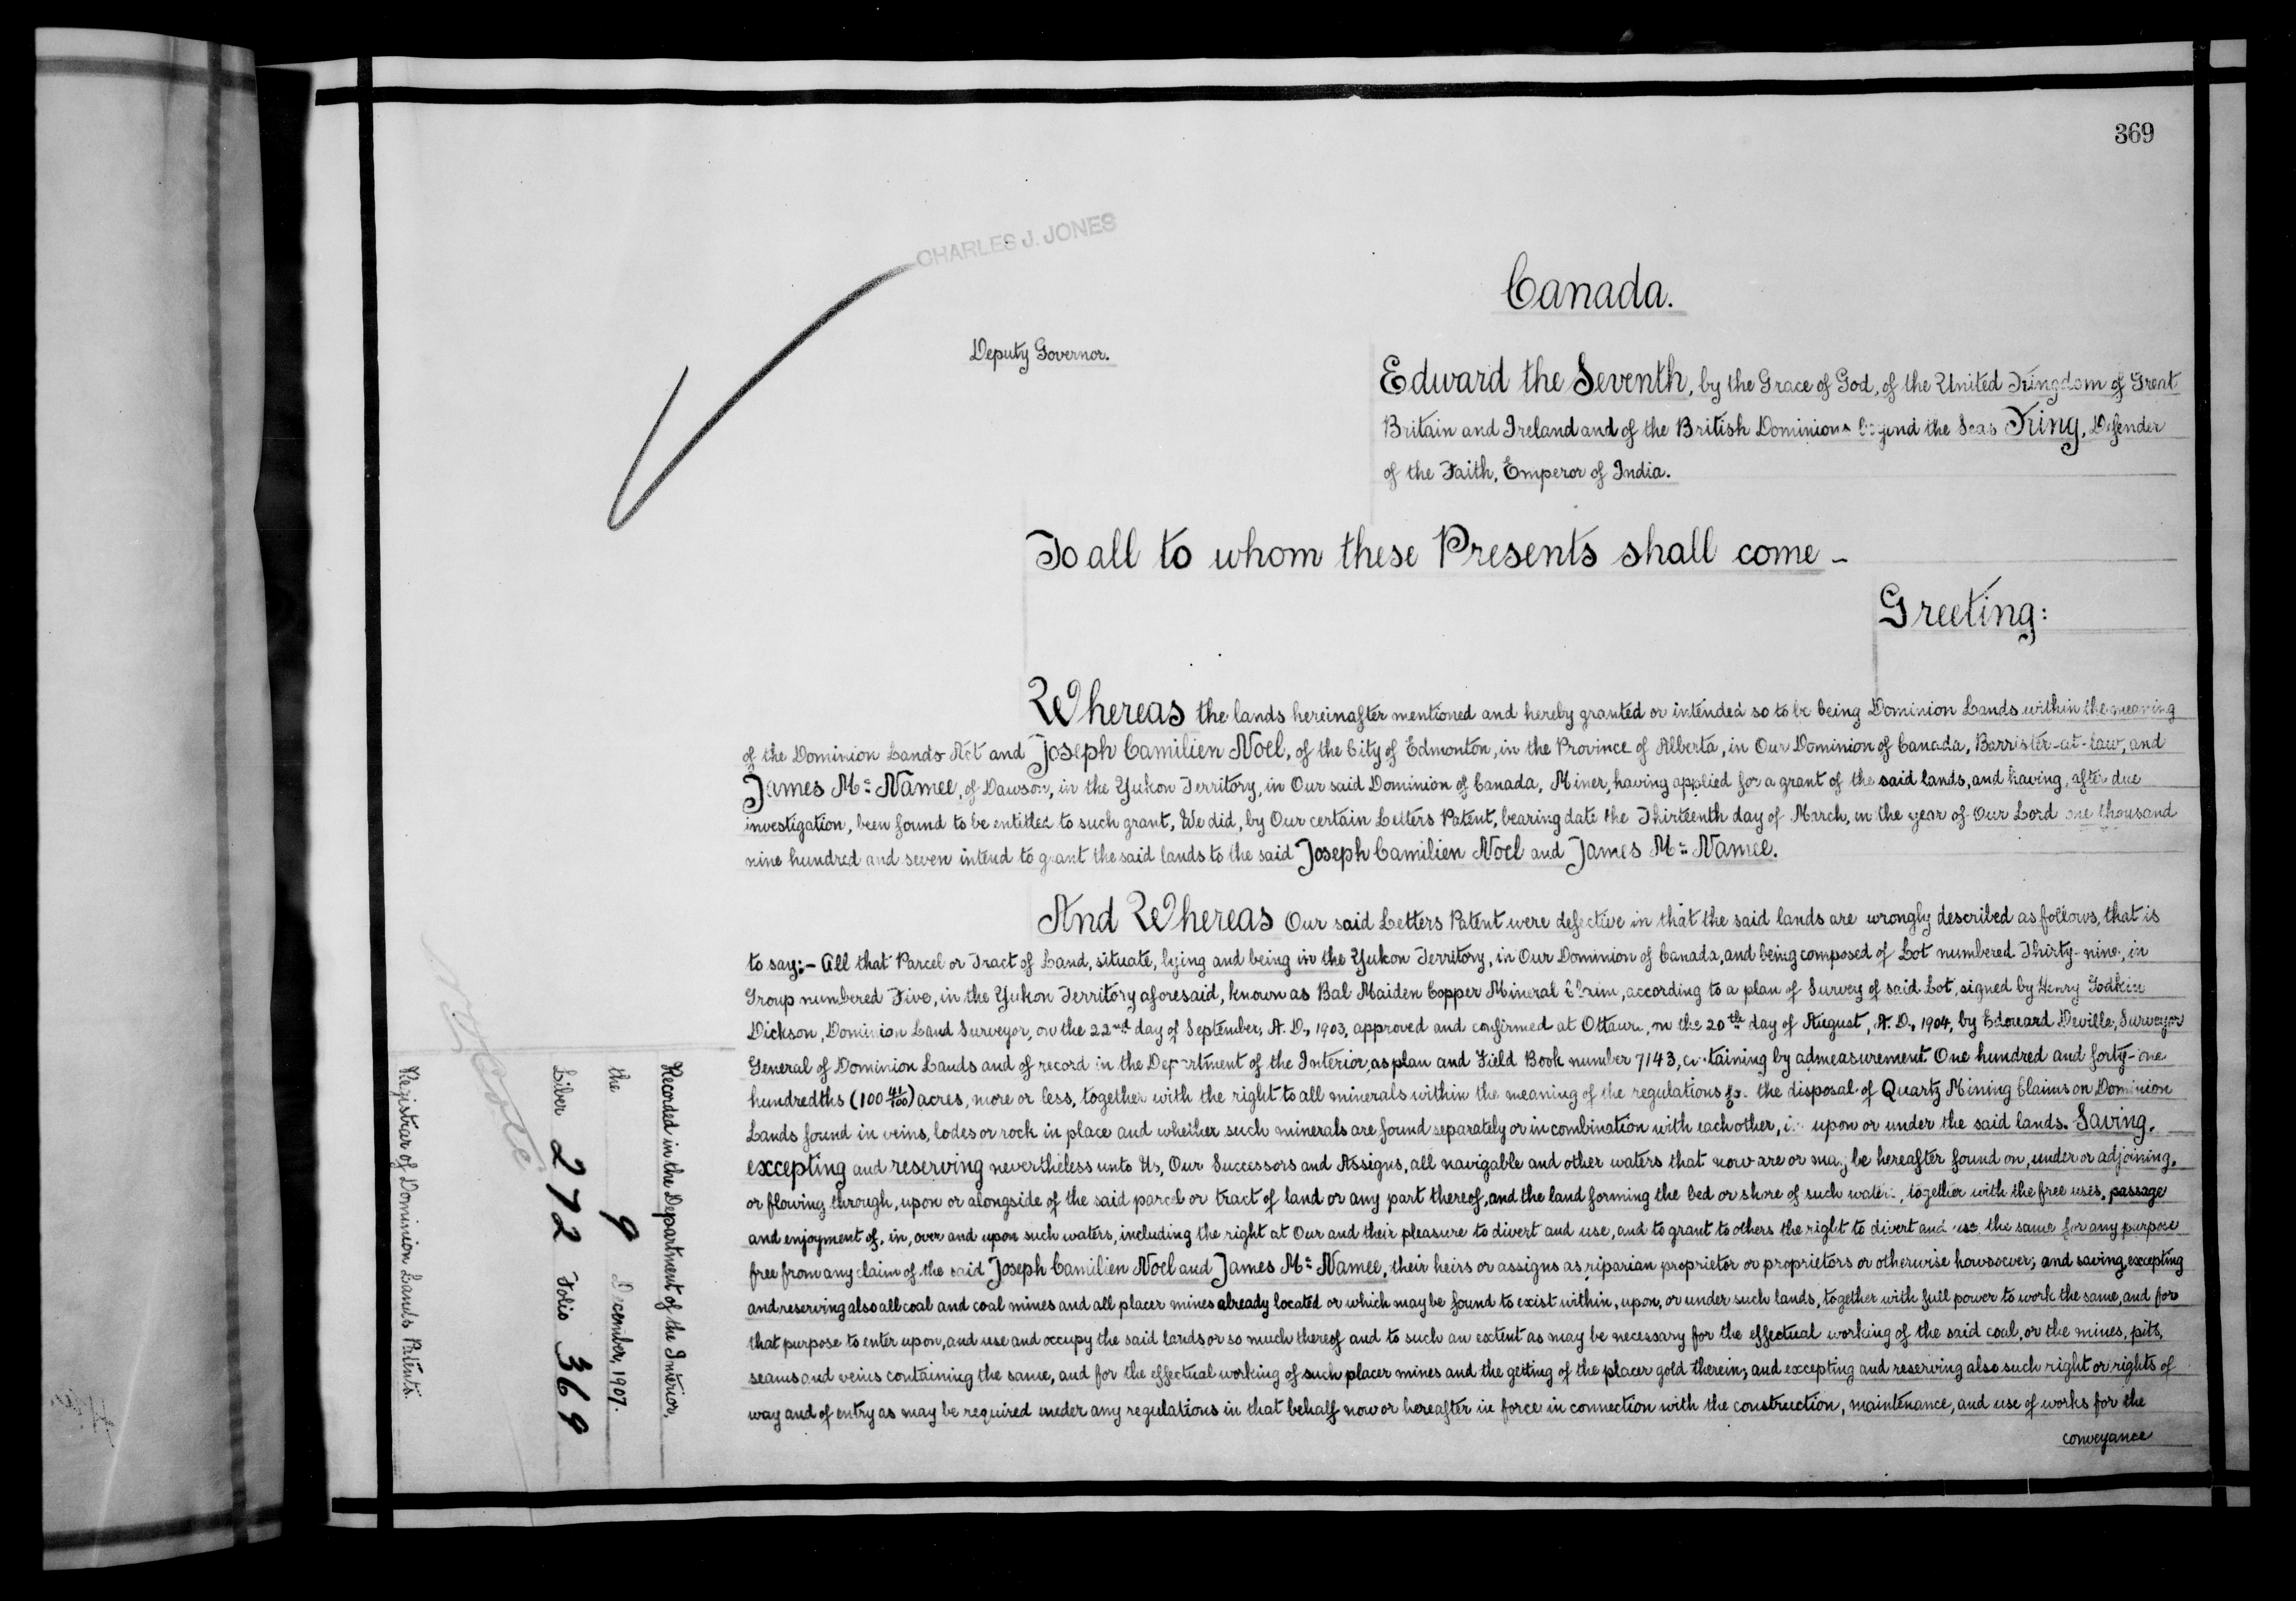 369
CHARLES J. JONES
Canada.
Deputy Governor.
Edward the Seventh, by the Grace of God, of the United Kingdom of Great
Britain and Ireland and of the British Dominions beyond the Seas King, Defender
of the Faith, Emperor of India.
To all to whom these Presents shall come –
Greeting:
Whereas the lands hereinafter mentioned and hereby granted or intended so to be being Dominion Lands within the meaning
of the Dominion Lands Act and Joseph Camilien Noel, of the City of Edmonton, in the Province of Alberta, in Our Dominion of Canada, Barrister-at-law, and
James Mc Namee, of Dawson, in the Yukon Territory, in Our said Dominion of Canada, Miner, having applied for a grant of the said lands, and having, after due
investigation, been found to be entitled to such grant, We did, by Our certain Letters Patent, bearing date the Thirteenth day of March, in the year of Our Lord one thousand
nine hundred and seven intend to grant the said lands to the said Joseph Camilien Noel and James Mc Namee.
And Whereas Our said Letters Patent were defective in that the said lands are wrongly described as follows, that is
to say:– All that Parcel or Tract of Land, situate, lying and being in the Yukon Territory, in Our Dominion of Canada, and being composed of Lot numbered Thirty-nine, in
Group numbered Five, in the Yukon Territory aforesaid, known as Bal Maiden Copper Mineral Claim, according to a plan of Survey of said Lot, signed by Henry Godkin
Dickson, Dominion Land Surveyor, on the 22nd day of September, A. D., 1903, approved and confirmed at Ottawa, on the 20th day of August, A. D., 1904, by Edouard Deville, Surveyor
General of Dominion Lands and of record in the Department of the Interior, as plan and Field Book number 7143, containing by admeasurement One hundred and forty-one
hundredths (100 41/100) acres, more or less, together with the right to all minerals within the meaning of the regulations for the disposal of Quartz Mining Claims on Dominion
Lands found in veins, lodes or rock in place and whether such minerals are found separately or in combination with each other, in upon or under the said lands. Saving,
excepting and reserving nevertheless unto Us, Our Successors and Assigns, all navigable and other waters that now are or may be hereafter found on, under or adjoining,
or flowing through, upon or alongside of the said parcel or tract of land or any part thereof, and the land forming the bed or shore of such waters, together with the free uses, passage
and enjoyment of, in, over and upon such waters, including the right at Our and their pleasure to divert and use, and to grant to others the right to divert and use the same for any purpose
free from any claim of the said Joseph Camilien Noel and James Mc Namee, their heirs or assigns as riparian proprietor or proprietors or otherwise howsoever; and saving, excepting
and reserving also all coal and coal mines and all placer mines already located or which may be found to exist within, upon, or under such lands, together with full power to work the same, and for
that purpose to enter upon, and use and occupy the said lands or so much thereof and to such an extent as may be necessary for the effectual working of the said coal, or the mines, pits,
seams and veins containing the same, and for the effectual working of such placer mines and the getting of the placer gold therein; and excepting and reserving also such right or rights of
way and of entry as may be required under any regulations in that behalf now or hereafter in force in connection with the construction, maintenance, and use of works for the
conveyance
Recorded in the Department of the Interior,
the 9 December, 1907.
Liber 272 Folio 369
Registrar of Dominion Lands Patents.